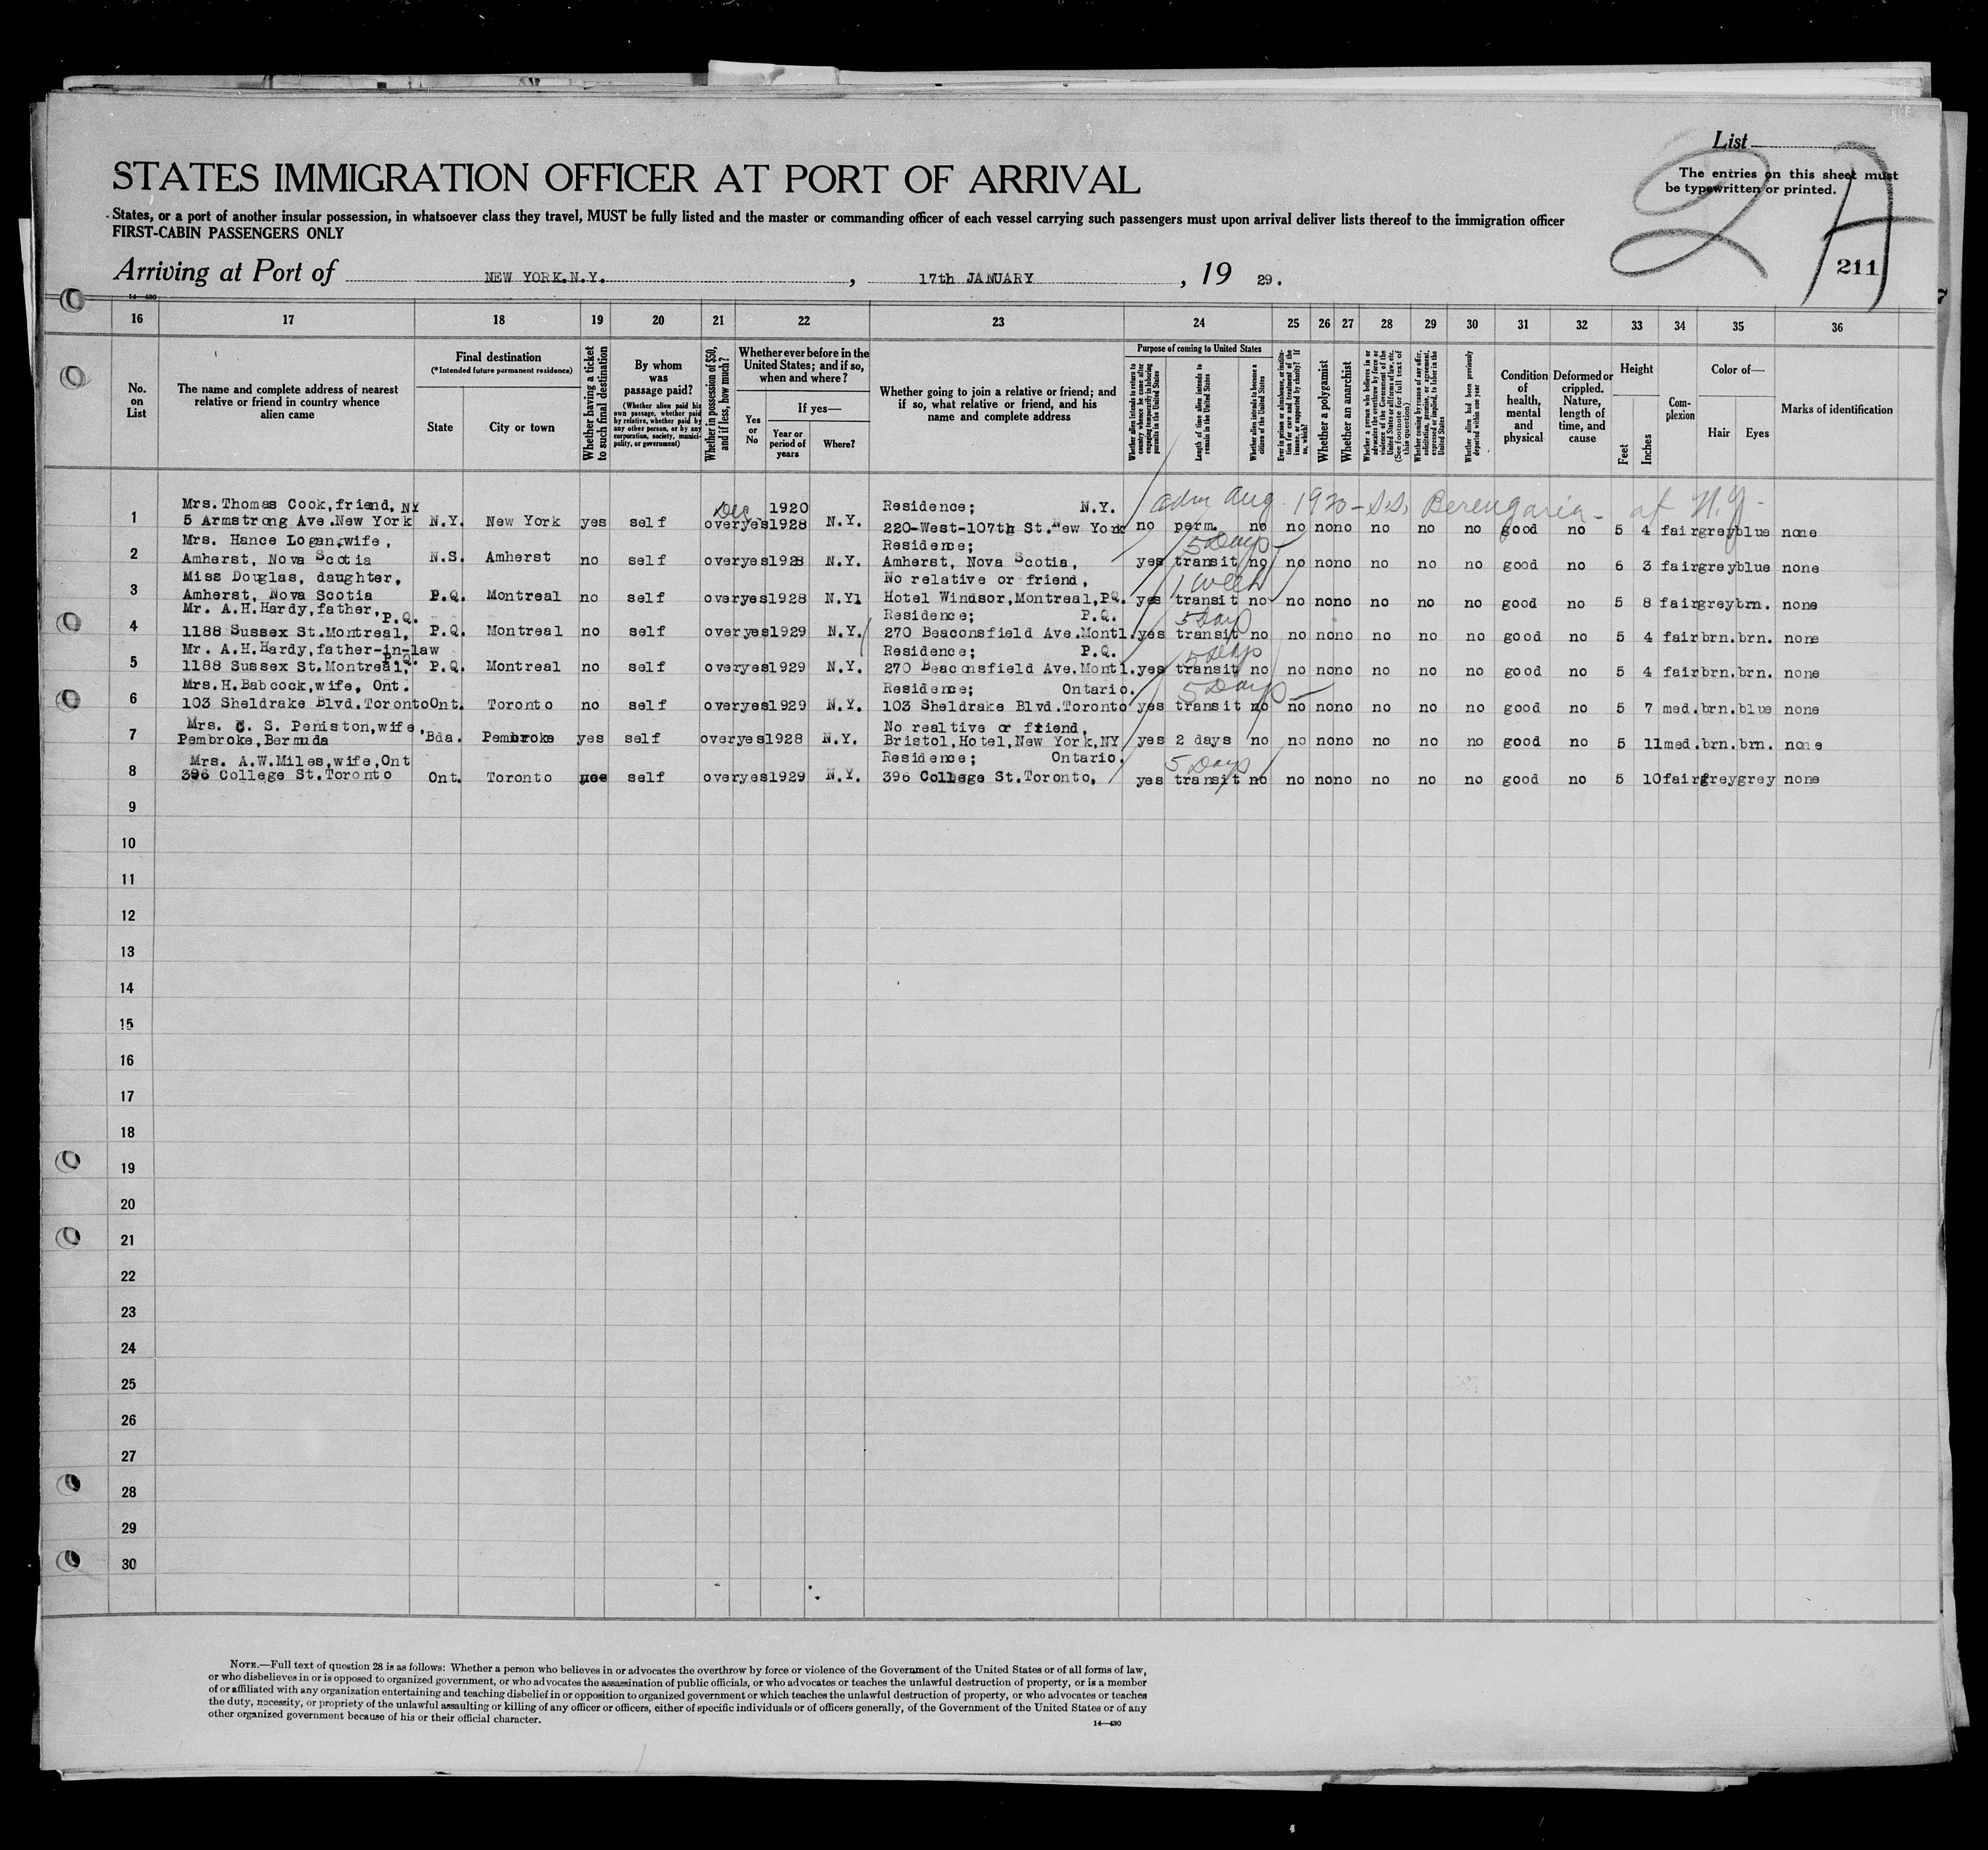 List
The entries on this sheet must
be typewritten or printed.
STATES IMMIGRATION OFFICER AT PORT OF ARRIVAL
States, or a port of another insular possession, in whatsoever class they travel, MUST be fully listed and the master or commanding officer of each vessel carrying such passengers must upon arrival deliver lists thereof to the immigration officer
FIRST-CABIN PASSENGERS ONLY
Arriving at Port of NEW YORK.N.Y. , 17th JANUARY , 19 29.
211
14—430
16 17 18 19 20 21 22 23 24 25 26 27 28 29 30 31 32 33 34 35 36
No. on List
The name and complete address of nearest relative or friend in country whence alien came
Final destination
(*Intended future permanent residence)
State
City or town
Whether having a ticket to such final destination
By whom was passage paid?
(Whether alien paid his own passage, whether paid by relative, whether paid by any other person, or by any corporation, society, municipality, or government)
Whether in possession of $50, and if less, how much?
Whether ever before in the United States; and if so, when and where?
Yes or No
If yes—
Year or period of years
Where?
Whether going to join a relative or friend; and if so, what relative or friend, and his name and complete address
Purpose of coming to United States
Whether alien intends to return to country whence he came after engaging temporarily in laboring pursuits in the United States
Length of time alien intends to remain in the United States
Whether alien intends to become a citizen of the United States
Ever in prison or almshouse, or institution for care and treatment of the insane, or supported by charity? If so, which?
Whether a polygamist
Whether an anarchist
Whether a person who believes in or advocates the overthrow by force or violence of the Government of the United States or all forms of law, etc. (See footnote for full text of this question)
Whether coming by reason of any offer, solicitation, promise, or agreement, expressed or implied, to labor in the United States
Whether alien had been previously deported within one year
Condition of health, mental and physical
Deformed or crippled. Nature, length of time, and cause
Height
Feet
Inches
Complexion
Color of—
Hair
Eyes
Marks of identification
Mrs. Thomas Cook, friend, NY Dec 1920 Residence; N.Y. adm Aug. 1920 - S.S. Berengaria - at N.Y. -
1 5 Armstrong Ave.New York N.Y. New York yes self over yes 1928 N.Y. 220-West-107th St.New York no perm. no no no no no no no good no 5 4 fair grey blue none
Mrs. Hance Logan,wife, Residence; 5 Days -
2 Amherst, Nova Scotia N.S. Amherst no self over yes 1928 N.Y. Amherst, Nova Scotia, yes transit no no no no no no no good no 6 3 fair grey blue none
Miss Douglas, daughter, No relative or friend, 1 week
3 Amherst, Nova Scotia P.Q. Montreal no self over yes 1928 N.Y1 Hotel Windsor,Montreal,PQ. yes transit no no no no no no no good no 5 8 fair grey brn. none
Mr. A.H.Hardy,father, P.Q. Residence; P.Q. 5 Days
4 1188 Sussex St.Montreal, P.Q. Montreal no self over yes 1929 N.Y. 270 Beaconsfield Ave.Montl. yes transit no no no no no no no good no 5 4 fair brn. brn. none
Mr. A.H.Hardy,father-in-law P.Q. Residence; P.Q. 5 Days
5 1188 Sussex St.Montreal, P.Q. Montreal no self over yes 1929 N.Y. 270 Beaconsfield Ave.Montl. yes transit no no no no no no no good no 5 4 fair brn. brn. none
Mrs.H.Babcock,wife, Ont. Residence; Ontario. 5 Days -
6 103 Sheldrake Blvd.Toronto Ont. Toronto no self over yes 1929 N.Y. 103 Sheldrake Blvd.Toronto yes transit no no no no no no no good no 5 7 med. brn. blue none
Mrs. C. S. Peniston,wife, No realtive or friend,
7 Pembroke,Bermuda Bda. Pembroke yes self over yes 1928 N.Y. Bristol,Hotel,New York,NY yes 2 days no no no no no no no good no 5 11 med. brn. brn. none
Mrs. A.W.Miles,wife,Ont Residence; Ontario. 5 Days
8 396 College St.Toronto Ont. Toronto self over yes 1929 N.Y. 396 College St.Toronto, yes transit no no no no no no no good no 5 10 fair grey grey none
9
10
11
12
13
14
15
16
17
18
19
20
21
22
23
24
25
26
27
28
29
30
NOTE.—Full text of question 28 is as follows: Whether a person who believes in or advocates the overthrow by force or violence of the Government of the United States or of all forms of law,
or who disbelieves in or is opposed to organized government, or who advocates the assassination of public officials, or who advocates or teaches the unlawful destruction of property, or is a member
of or affiliated with any organization entertaining and teaching disbelief in or opposition to organized government or which teaches the unlawful destruction of property, or who advocates or teaches
the duty, necessity, or propriety of the unlawful assaulting or killing of any officer or officers, either of specific individuals or of officers generally, of the Government of the United States or of any
other organized government because of his or their official character.
14—430